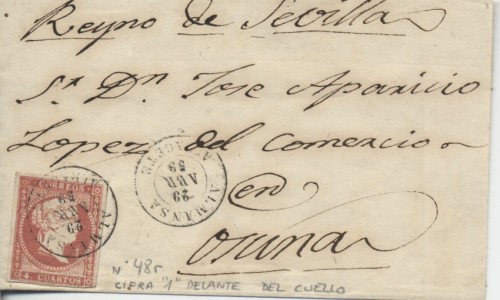 Reyno de Sevilla
Sr. Dn Jose Aparicio
Lopez del comercio
en
Osuna
ALMANSA
29
ABR
59
ALBACETE
CORREOS
4 CUARTOS
29
ABR
59
Nº 48r
CIFRA "1" DELANTE DEL CUELLO